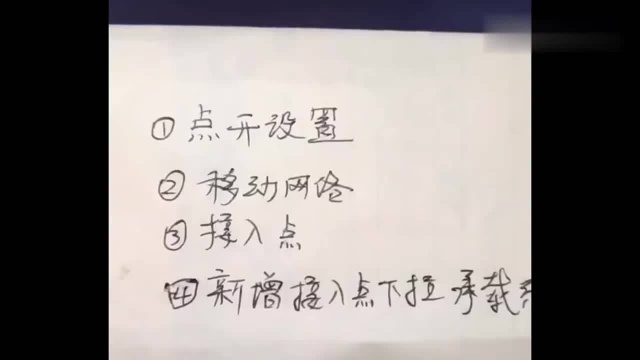 ①点开设置
②移动网络
③接入点
④新增接入点下拉承载